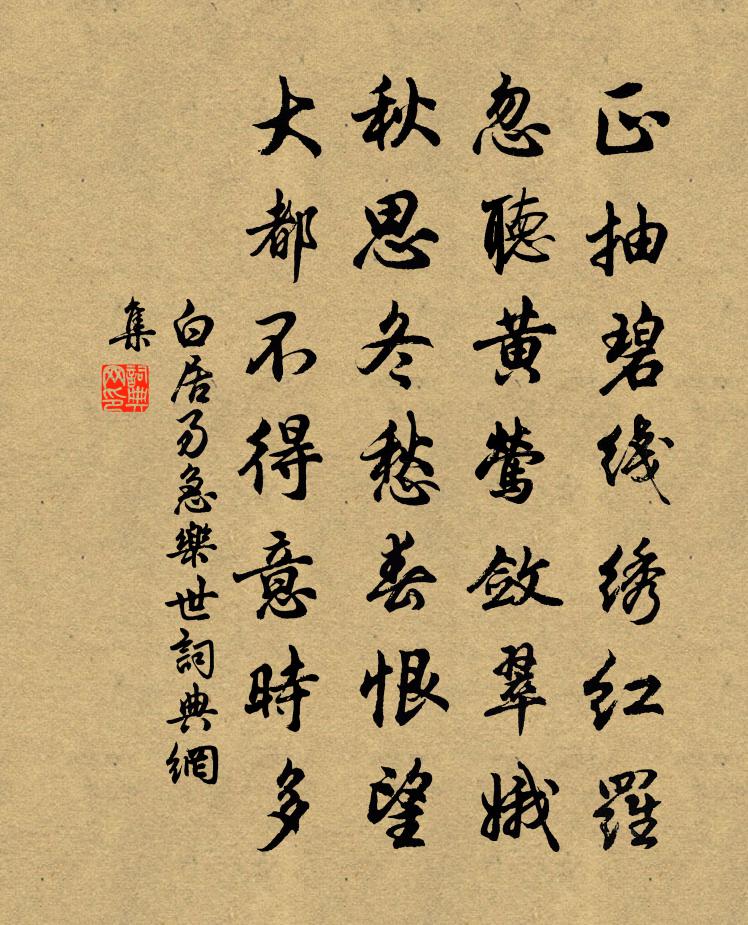 正抽碧线绣红羅
忽聽黄莺敛翠娥
秋思冬愁春恨望
大都不得意時多
白居易急樂世詞典網
集
詞典网印